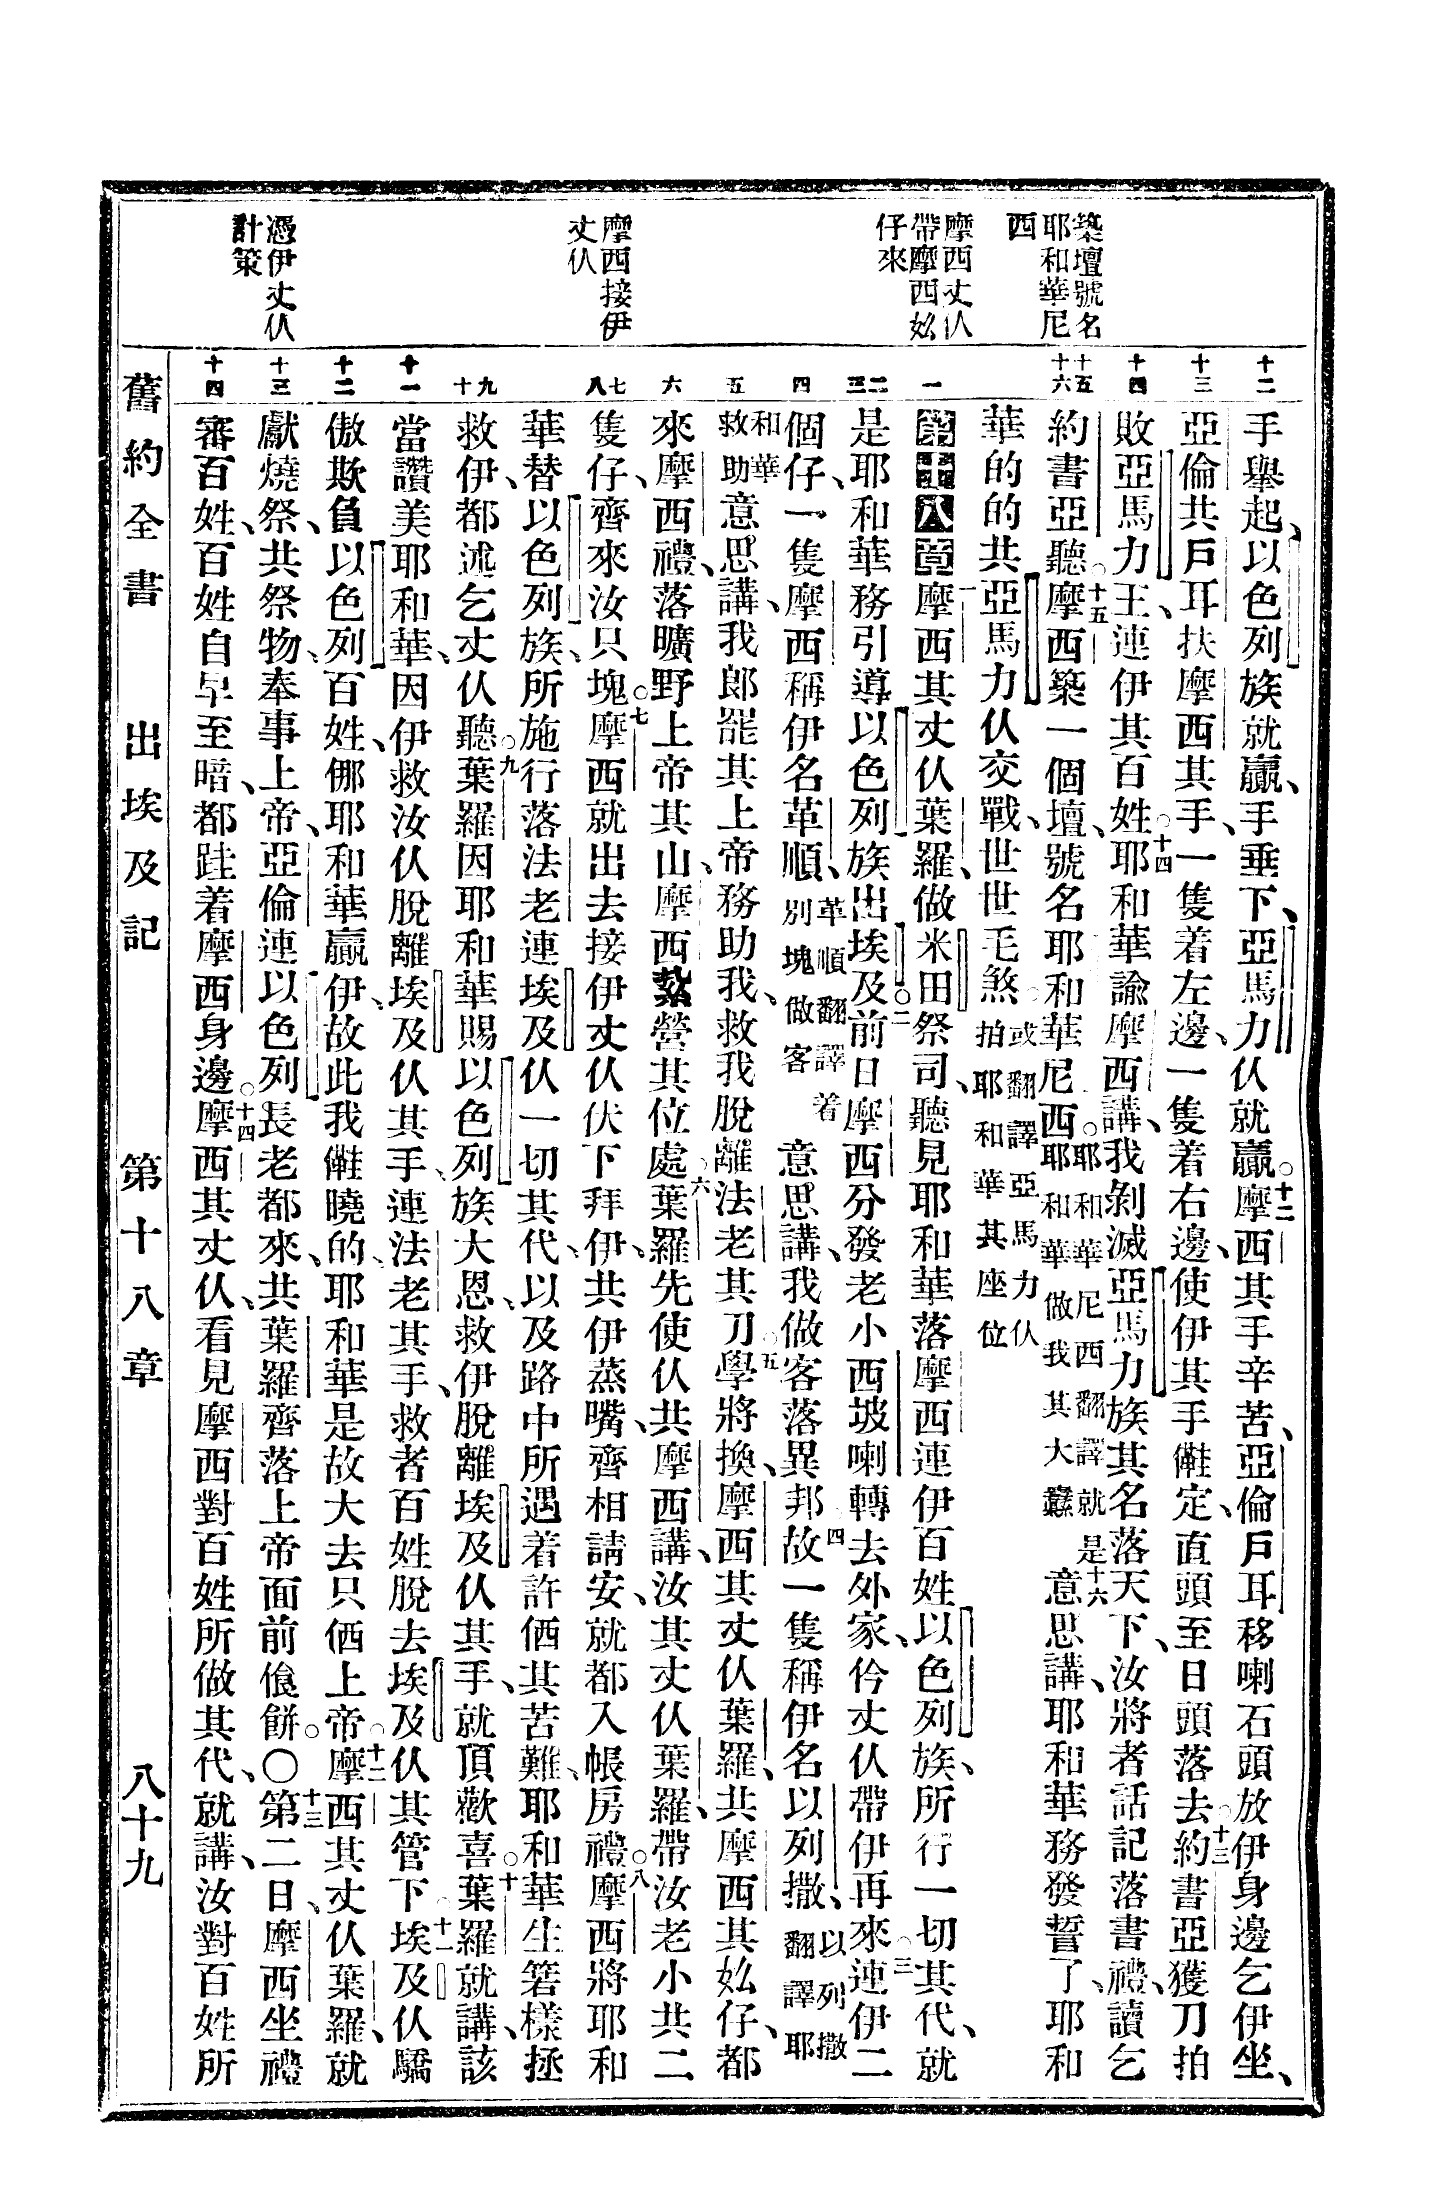 築壇號名
耶和華尼
西
摩西丈仈
帶摩西𡚸
仔來
摩西接伊
丈仈
憑伊丈仈
計策
十二
十三
十四
十五
十六
一
二
三
四
五
六
七
八
九
十
十一
十二
十三
十四
手舉起、以色列族就贏、手垂下、亞馬力仈就贏。十二摩西其手辛苦、亞倫戶耳移喇石頭放伊身邊乞伊坐、
亞倫共戶耳扶摩西其手、一隻着左邊、一隻着右邊、使伊其手𠉂定、直頭至日頭落去。十三約書亞獲刀拍
敗亞馬力王、連伊其百姓。十四耶和華諭摩西講、我剝滅亞馬力族其名落天下、汝將者話記落書禮、讀乞
約書亞聽。十五摩西築一個壇、號名耶和華尼西。耶和華尼西翻譯就是耶和華做我其大纛十六意思講、耶和華務發誓了、耶和
華的的共亞馬力仈交戰、世世毛煞。或翻譯亞馬力仈拍耶和華其座位
第十八章一摩西其丈仈葉羅、做米田祭司、聽見耶和華落摩西連伊百姓以色列族、所行一切其代、就
是耶和華務引導以色列族出埃及。二前日摩西分發老小西坡喇轉去外家、仱丈仈帶伊再來、三連伊二
個仔、一隻摩西稱伊名革順、革順翻譯着別塊做客意思講、我做客落異邦故。四一隻稱伊名以列撒、以列撒翻譯耶
和華救助意思講、我郎罷其上帝務助我、救我脫離法老其刀學。五將換、摩西其丈仈葉羅、共摩西其𡚸仔、都
來摩西禮、落曠野上帝其山、摩西紮營其位處。六葉羅先使仈共摩西講、汝其丈仈葉羅、帶汝老小共二
隻仔、齊來汝只塊。七摩西就出去接伊丈仈、伏下拜伊、共伊蒸嘴、齊相請安、就都入帳房禮。八摩西將耶和
華替以色列族、所施行落法老連埃及仈一切其代、以及路中所遇着許価其苦難、耶和華生箬樣拯
救伊、都述乞丈仈聽。九葉羅因耶和華賜以色列族大恩、救伊脫離埃及仈其手、就頂歡喜。十葉羅就講、該
當讚美耶和華、因伊救汝仈脫離埃及仈其手、連法老其手、救者百姓脫去埃及仈其管下。十一埃及仈驕
傲欺負以色列百姓、𠊎耶和華贏伊、故此我𠉂曉的、耶和華是故大去只価上帝。十二摩西其丈仈葉羅、就
獻燒祭、共祭物、奉事上帝、亞倫連以色列長老都來、共葉羅齊落上帝面前飡餅。〇十三第二日、摩西坐禮
審百姓、百姓自早至暗、都跬着摩西身邊。十四摩西其丈仈、看見摩西對百姓所做其代、就講、汝對百姓所
舊約全書 出埃及記 第十八章 八十九